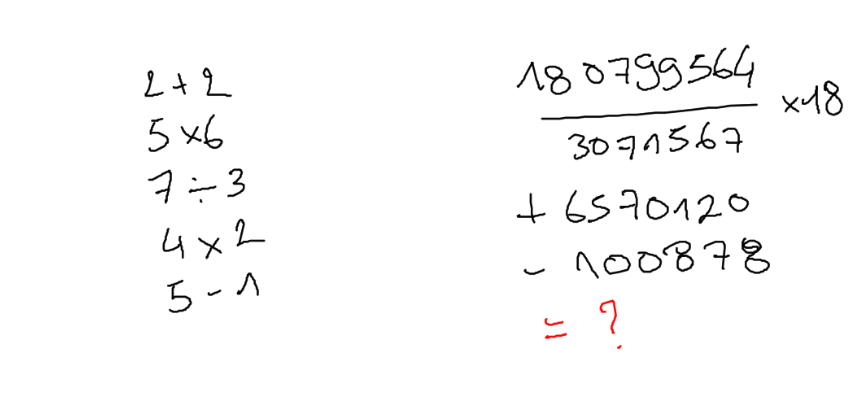 2 + 2
5 x 6
7 ÷ 3
4 x 2
5 - 1
180799564
x18
3071567
+ 6570120
- 100878
= ?